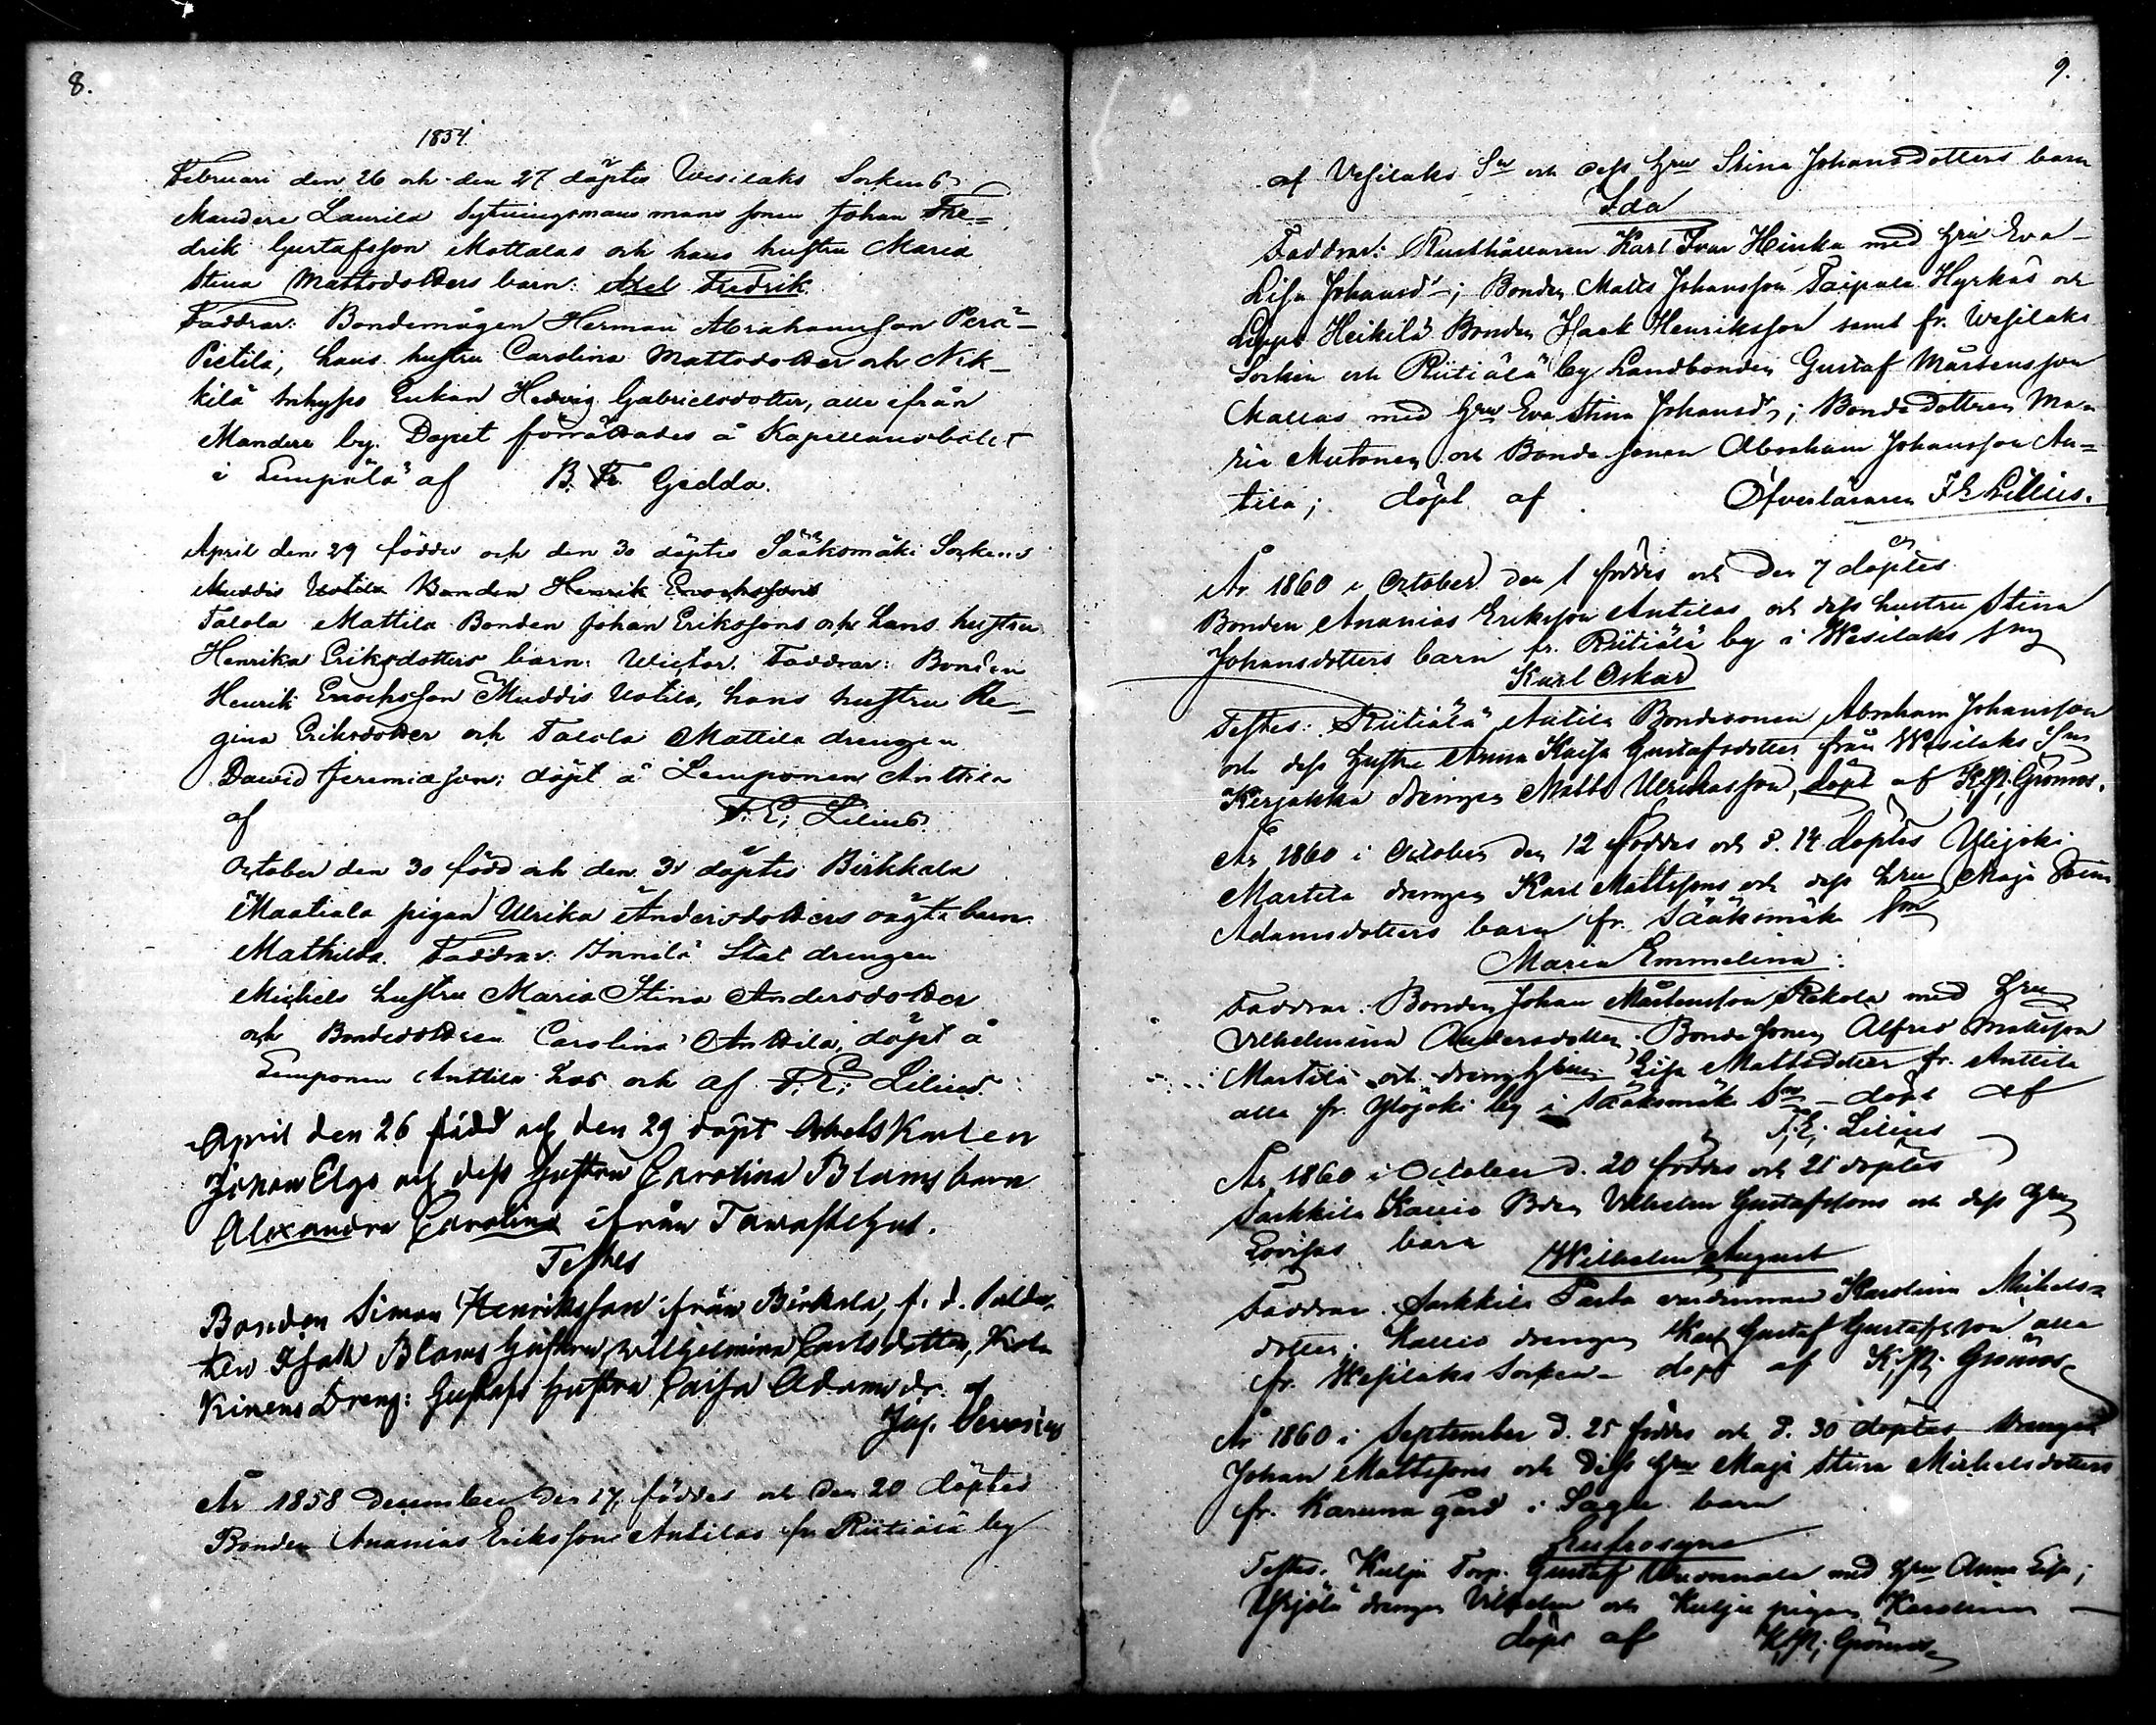 8.
1854.
Februari den 26 och den 27 döptes Wesilaks Sockens
Mandere Laurila Sytningsmans mans sonen Johan Fre-
drik Gustafsson Mattalas och hans hustru Maria
Stina Mattsdotters barn: Axel Fredrik.
Faddrar: Bondemågen Herman Abrahamsson Perä-
Pietilä, hans hustru Carolina Mattsdotter och Nik-
kilä Inhyses Enkan Hedvig Gabrielsdotter, alla ifrån
Mandere by. Dopet förrättades å Kapellansbolet
i Lempälä af B. Fr. Gedda.
April den 29 föddes och den 30 döptes Sääksmäki Sockens
Muddis Uotila Bonden Henrik Enochssons
Talola Mattila Bonden Johan Erikssons och hans hustru
Henrika Eriksdotters barn: Wictor. Faddrar: Bonden
Henrik Enochsson Muddis Uotila, hans hustru Re-
gina Eriksdotter och Talola Mattila drengen
Dawid Jeremiasson; döpt å Lemponen Anttila
af F. E. Lilius.
October den 30 född och den 31 döptes Birkkala
Maatiala pigan Ulrika Andersdotters oägta barn
Mathilda. Faddrar: Innilä Stat drengen
Michels hustru Maria Stina Andersdotter
och Bondedottren Carolina Anttila, döpt å
Lemponen Anttila hos och af F. E. Lilius.
April den 26 född och den 29 döpt
Johan Elgs och dess hustru Carolina Bloms barn
Alexandra Carolina ifrån Tawastehus.
Testes
Bonden Simon Henriksson ifrån Birkala, f. d. Solda-
ten Isak Bloms hustru Wilhelmina Carlsdotter,
Kinens Dreng: Gustafs hustru Caisa Adamsdr. af
Jos.
År 1858 december den 17 föddes och den 20 döptes
Bonden Ananias Eriksson Antilas fr. Riitiälä by
9.
af Vesilaks Sn och dess hru Stina Johansdotters barn
Ida
Faddrar: Rusthållaren Karl Ivar Heinka med hru Eva
Lisa Johansd:; Bonden Matts Johansson Taipala Hyrkäs och
Heikilä Bonden Isaak Henriksson samt fr. Wesilaks
Socken och Riitiälä by Landbonden Gustaf Mårtensson
Mallas med hru Eva Stina Johansdr; Bondedottren Ma-
ria Mutonen och Bondesonen Abraham Johansson An-
tila; döpt af Öfverläraren F E Lilius.
År 1860 i October den 1 föddes och den 7 döptes
Bonden Ananias Eriksson Antilas och dess hustru Stina
Johansdotters barn fr. Riitiälä by i Wesilaks Sn
Karl Oskar
Testes: Riitiälä Antila Bondesonen Abraham Johansson
och dess hustru Anna Kaisa Gustafsdotter från Wesilaks Sn
Kerjakka drengen Matts Ulrikasson, döpt af K. R. Grönros.
År 1860 i October den 12 föddes och d. 14 döptes Ylijoki
Martila drengen Karl Mattssons och dess hru Maja Stina
Adamsdotters barn fr. Sääksmäki Sn
Maria Emmelina:
Faddrar: Bonden Johan Mårtensson Rekola med hru
Vilhelmina Andersdotter. Bondesonen Alfred Mattsson
Martila och Lisa Mattsdotter fr. Anttila
alla fr. Ylijoki by i Sääksmäki Sn - döpt af
F. E. Lilius
År 1860 i October d. 20 föddes och 21 döptes
Sarkkila Kallio Bden Vilhelm Gustafssons och dess hru
Lovisas barn Wilhelm August
Faddrar: Sarkkila Karolina Michels-
dotter; Kallio drengen Karl Gustaf Gustafsson alla
fr. Wesilaks Socken - döpt af K. R. Grönros
År 1860 i September d. 25 föddes och d. 30 döptes drengen
Johan Mattssons och dess hru Maja Stina Michelsdotters
fr. Karuna gård i Sagu barn
Eufrosyne
Testes: Kulju Torp. Gustaf med hru Anna Lisa;
drengen Vilhelm och Kulju pigan Karolina
döpt af K. R. Grönros